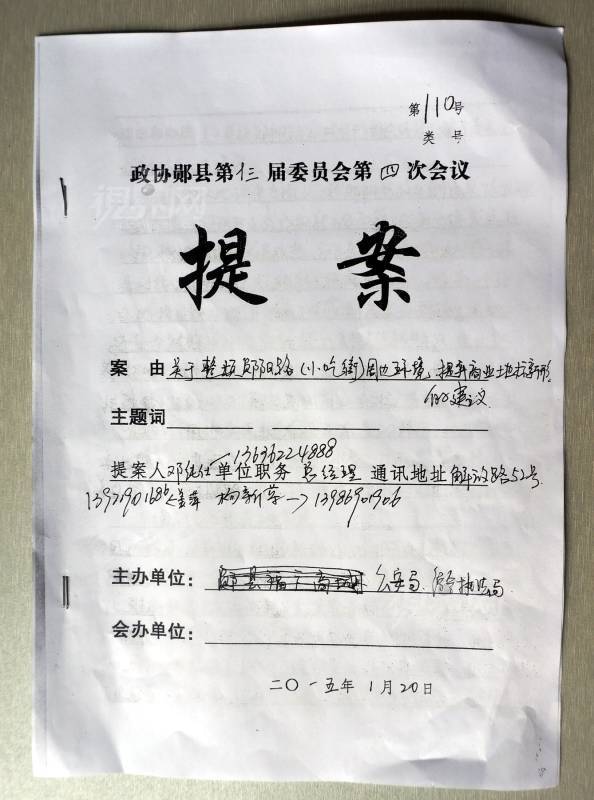 第110号
类 号
政协郧县第仨届委员会第四次会议
提 案
案 由 关于整顿郧阳路(小吃街)周边环境、提升商业地标新形
的建议
主题词
13636224888
提案人 邓 仕 单位职务 总经理 通讯地址 解放路52号
杨新华→13986901906
主办单位: 公安局、综合执法局
会办单位:
二〇一五年1月20日